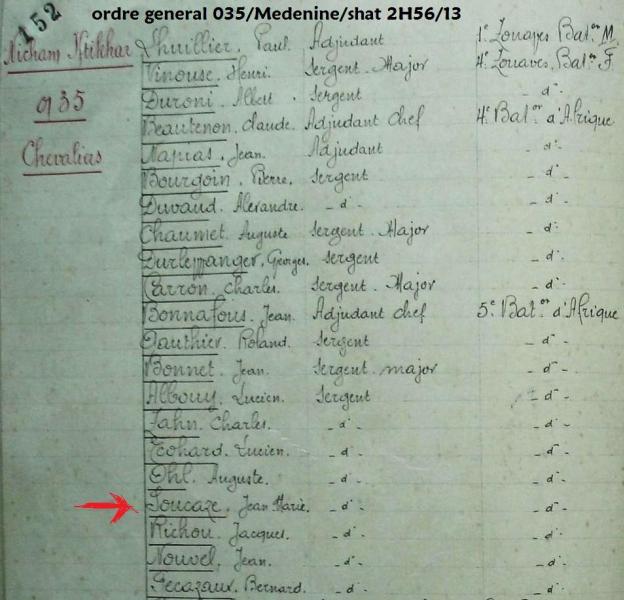 ordre general 035/Medenine/shat 2H56/13
152
Nicham Iftikhar
935
Chevaliers
Lhuillier, Paul. Adjudant 1e Zouaves Baton M.
Vinouse. Henri. Sergent-Major 4e Zouaves, Baton F.
Duroni. Albert. Sergent - d° -
Beautenon. Claude. Adjudant Chef 4e Baton d'Afrique
Napias. Jean. Adjudant - d° -
Bourgoin. Pierre. Sergent - d° -
Duvaud. Alexandre. - d° - - d° -
Chaumet. Auguste Sergent Major - d° -
Georges. Sergent - d° -
Carron. Charles. Sergent-Major - d° -
Bonnafous. Jean. Adjudant Chef 5e Baton d'Afrique
Gauthier. Roland. Sergent - d° -
Bonnet. Jean. Sergent major - d° -
Albouy. Lucien. Sergent - d° -
Jahn. Charles. - d° - - d° -
Lucien. - d° - - d° -
Ohl. Auguste. - d° - - d° -
Soucaze. Jean Marie. - d° - - d° -
Richou. Jacques. - d° - - d° -
Nouvel. Jean. - d° - - d° -
Bernard. - d° - - d° -